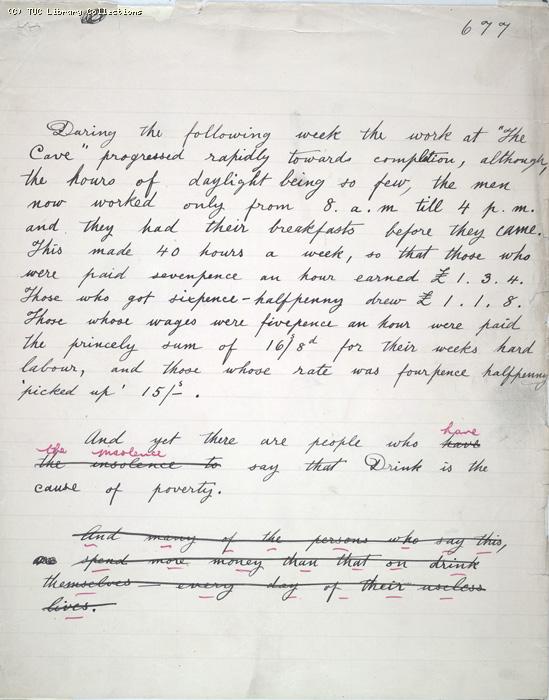 (C) TUC Library Collections
677
During the following week the work at "The
Cave" progressed rapidly towards completion, although,
the hours of daylight being so few, the men
now worked only from 8. a.m till 4 p.m.
and they had their breakfasts before they came.
This made 40 hours a week, so that those who
were paid sevenpence an hour earned £1.3.4.
Those who got sixpence-halfpenny drew £1.1.8.
Those whose wages were fivepence an hour were paid
the princely sum of 16/8d for their weeks hard
labour, and those whose rate was fourpence halfpenny
'picked up' 15/-.
have
And yet there are people who have
the insolence
the insolence to say that Drink is the
cause of poverty.
And many of the persons who say this,
spend more money than that on drink
themselves every day of their useless
lives.